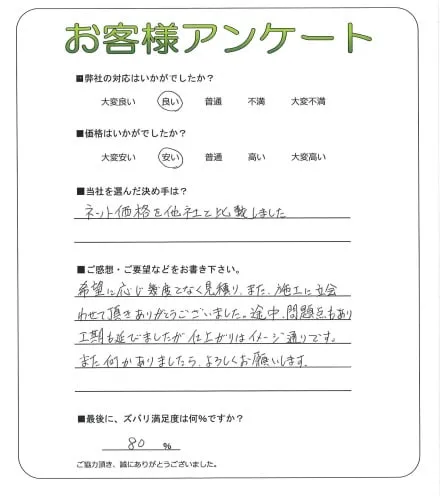 お客様アンケート
■弊社の対応はいかがでしたか?
大変良い 良い 普通 不満 大変不満
■価格はいかがでしたか?
大変安い 安い 普通 高い 大変高い
■当社を選んだ決め手は?
ネット価格を他社と比較しました
■ご感想・ご要望などをお書き下さい。
希望に応じ幾度となく見積り、また、施工に立会
わせて頂きありがとうございました。途中、問題点もあり
工期も延びましたが仕上がりはイメージ通りです。
また何かありましたら、よろしくお願いします。
■最後に、ズバリ満足度は何%ですか?
80 %
ご協力頂き、誠にありがとうございました。